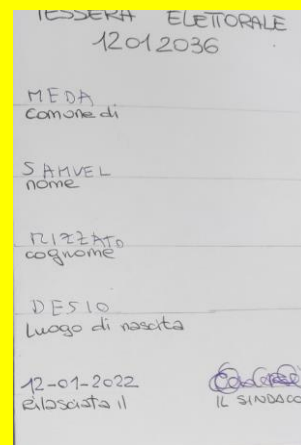 TESSERA ELETTORALE
12012036
MEDA
comune di
SAMVEL
nome
RIZZATO
cognome
DESIO
Luogo di nascita
12-01-2022
Rilasciata il
IL SINDACO